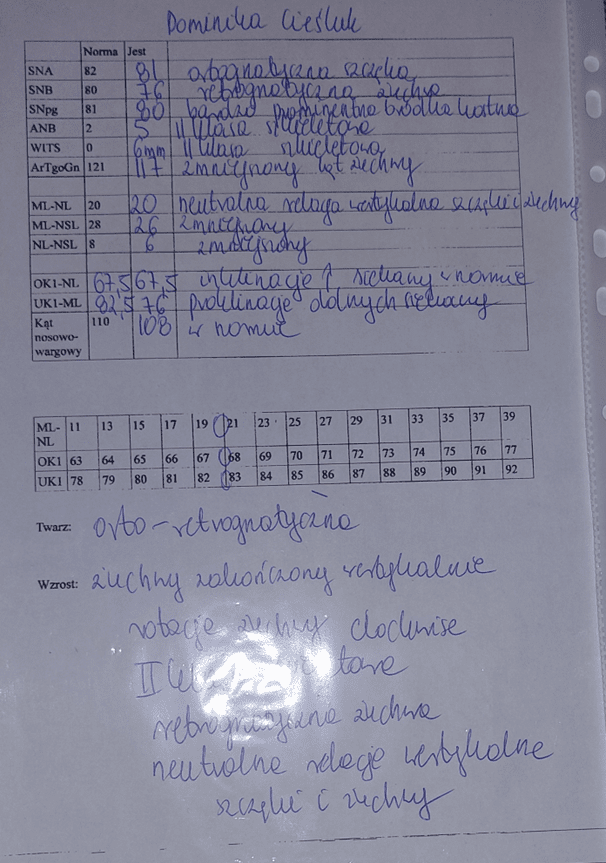 Dominika Cieśluk
Norma Jest
SNA 82 81 ortognatyczna szczęka
SNB 80 76 retrognatyczna żuchwa
SNpg 81 80 bardzo prominentna bródka kostna
ANB 2 5 II klasa szkieletowa
WITS 0 6mm II klasa szkieletowa
ArTgoGn 121 117 zmniejszony kąt żuchwy
ML-NL 20 20 neutralna relacja wertykalna szczęki i żuchwy
ML-NSL 28 26 zmniejszony
NL-NSL 8 6 zmniejszony
OK1-NL 67,5 67,5 inklinacje ↑ siekaczy w normie
UK1-ML 82,5 76 proklinacje dolnych siekaczy
Kąt nosowo-wargowy 110 108 w normie
ML-NL 11 13 15 17 19 21 23 25 27 29 31 33 35 37 39
OK1 63 64 65 66 67 68 69 70 71 72 73 74 75 76 77
UK1 78 79 80 81 82 83 84 85 86 87 88 89 90 91 92
Twarz: orto-retrognatyczna
Wzrost: żuchwy zakończony wertykalnie
rotacje żuchwy clockwise
II
retrognatyczna żuchwa
neutralne relacje wertykalne
szczęki i żuchwy